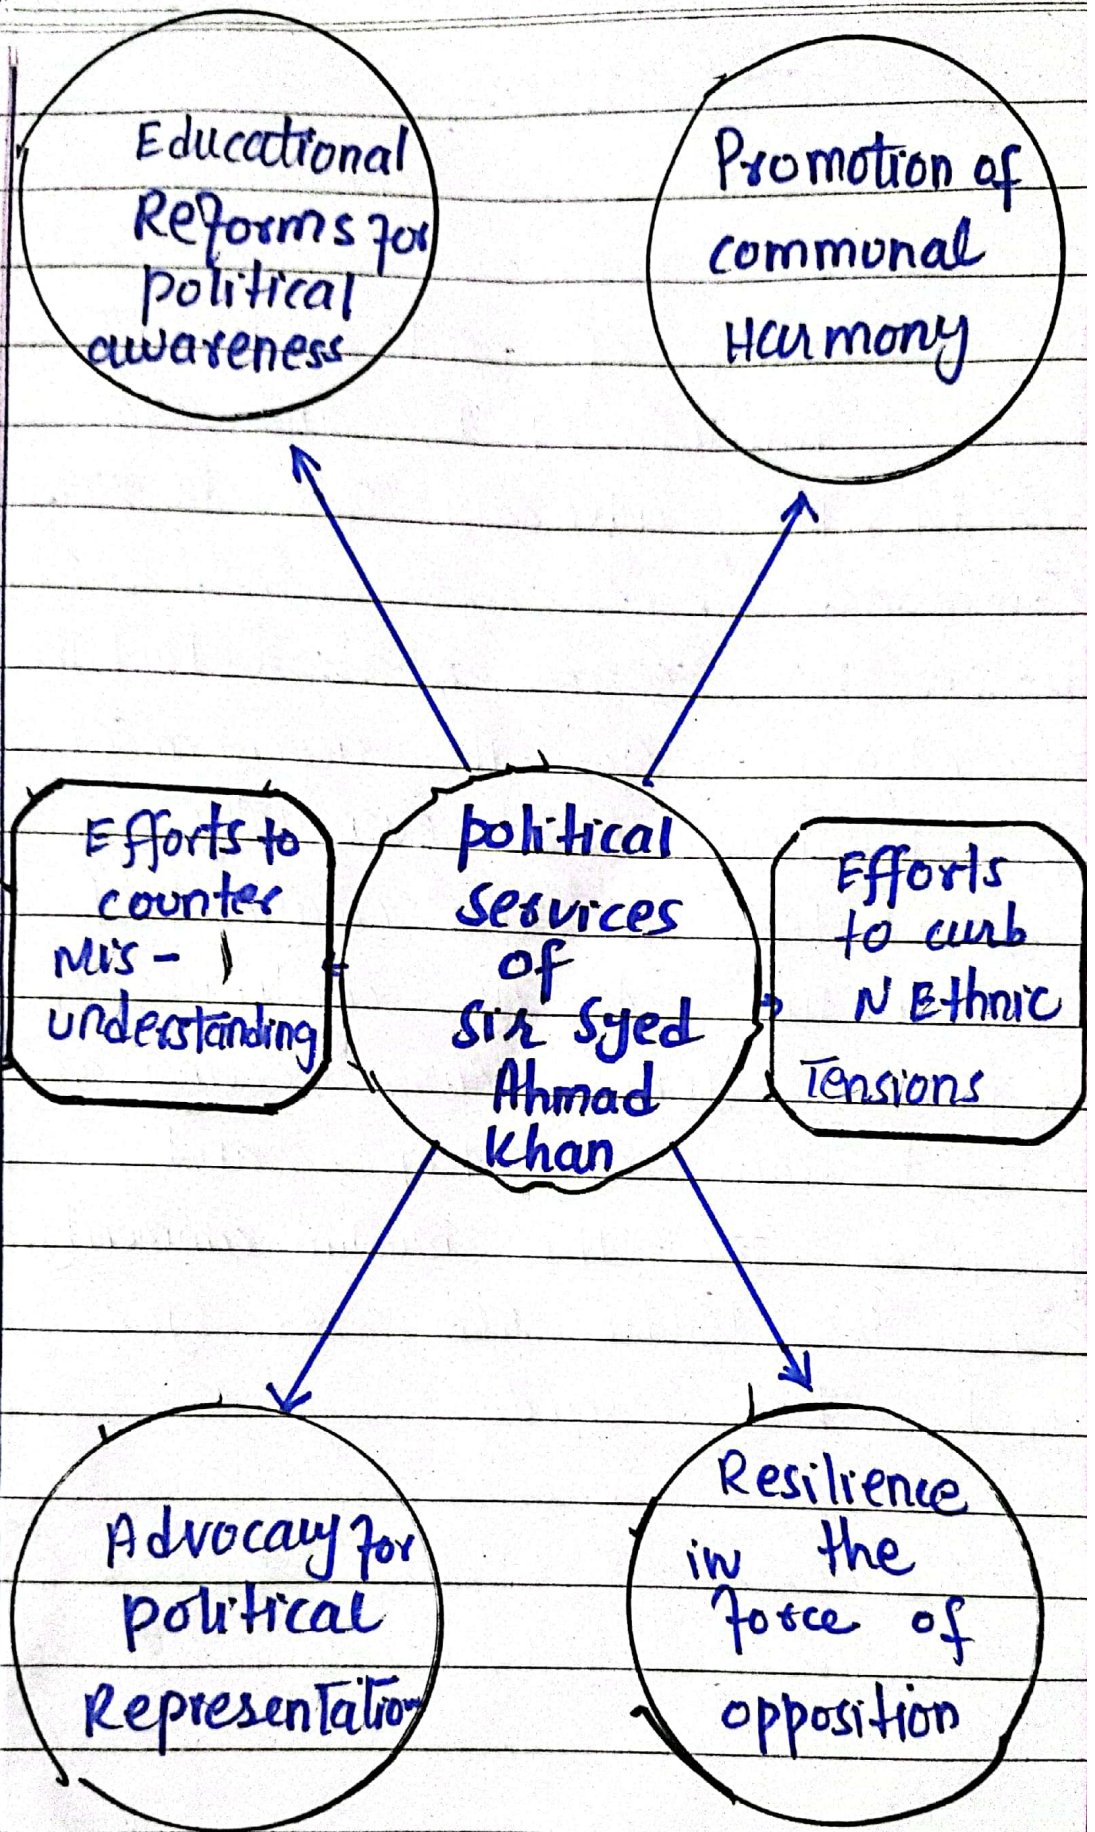 Educational
Reforms for
political
awareness
Promotion of
communal
Harmony
Efforts to
counter
Mis-
understanding
political
services
of
sir Syed
Ahmad
Khan
Efforts
to curb
N Ethnic
Tensions
Advocacy for
political
Representation
Resilience
in the
force of
opposition